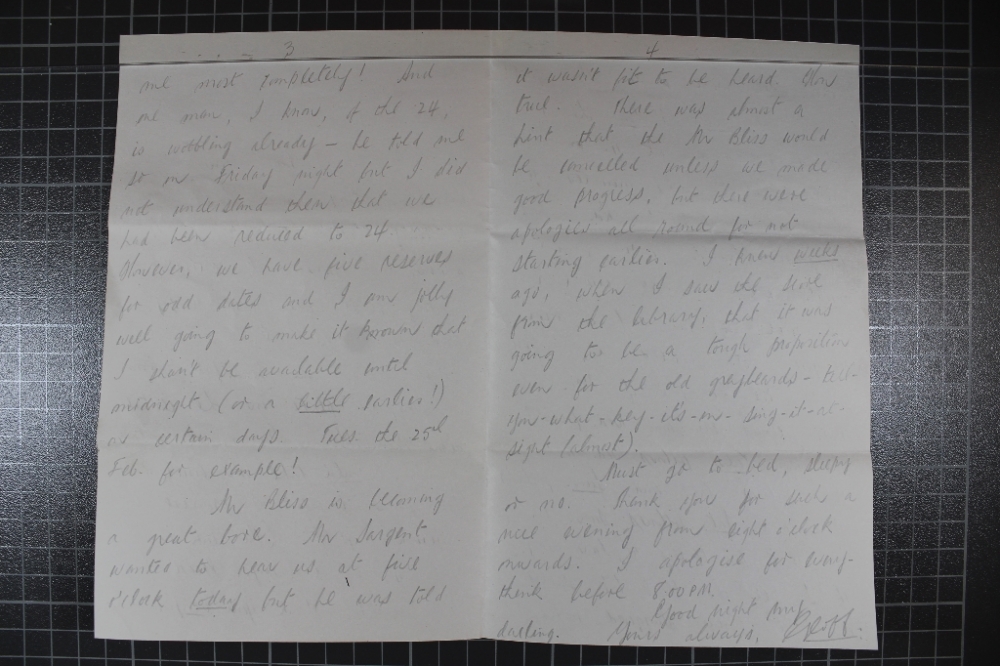 3
me most completely! And
one man, I know, of the 24,
is wobbling already – he told me
so on Friday night but I did
not understand then that we
had been reduced to 24.
However, we have five reserves
for odd dates and I am jolly
well going to make it known that
I shan't be available until
midnight (or a little earlier!)
on certain days. Tues. the 25th
Feb. for example!
Mr Bliss is becoming
a great bore. Mr Sargent
wanted to hear us at five
o'clock today but he was told
4
it wasn't fit to be heard. How
true. There was almost a
hint that the Mr Bliss would
be cancelled unless we made
good progress, but there were
apologies all round for not
starting earlier. I knew weeks
ago, when I saw the score
from the library, that it was
going to be a tough proposition
even for the old greybeards – tell-
you-what-key-it's-in-sing-it-at-
sight (almost).
Must go to bed, sleepy
or no. Thank you for such a
nice evening from eight o'clock
onwards. I apologise for every-
think before 8.00 PM.
Good night my
darling. Yours always,